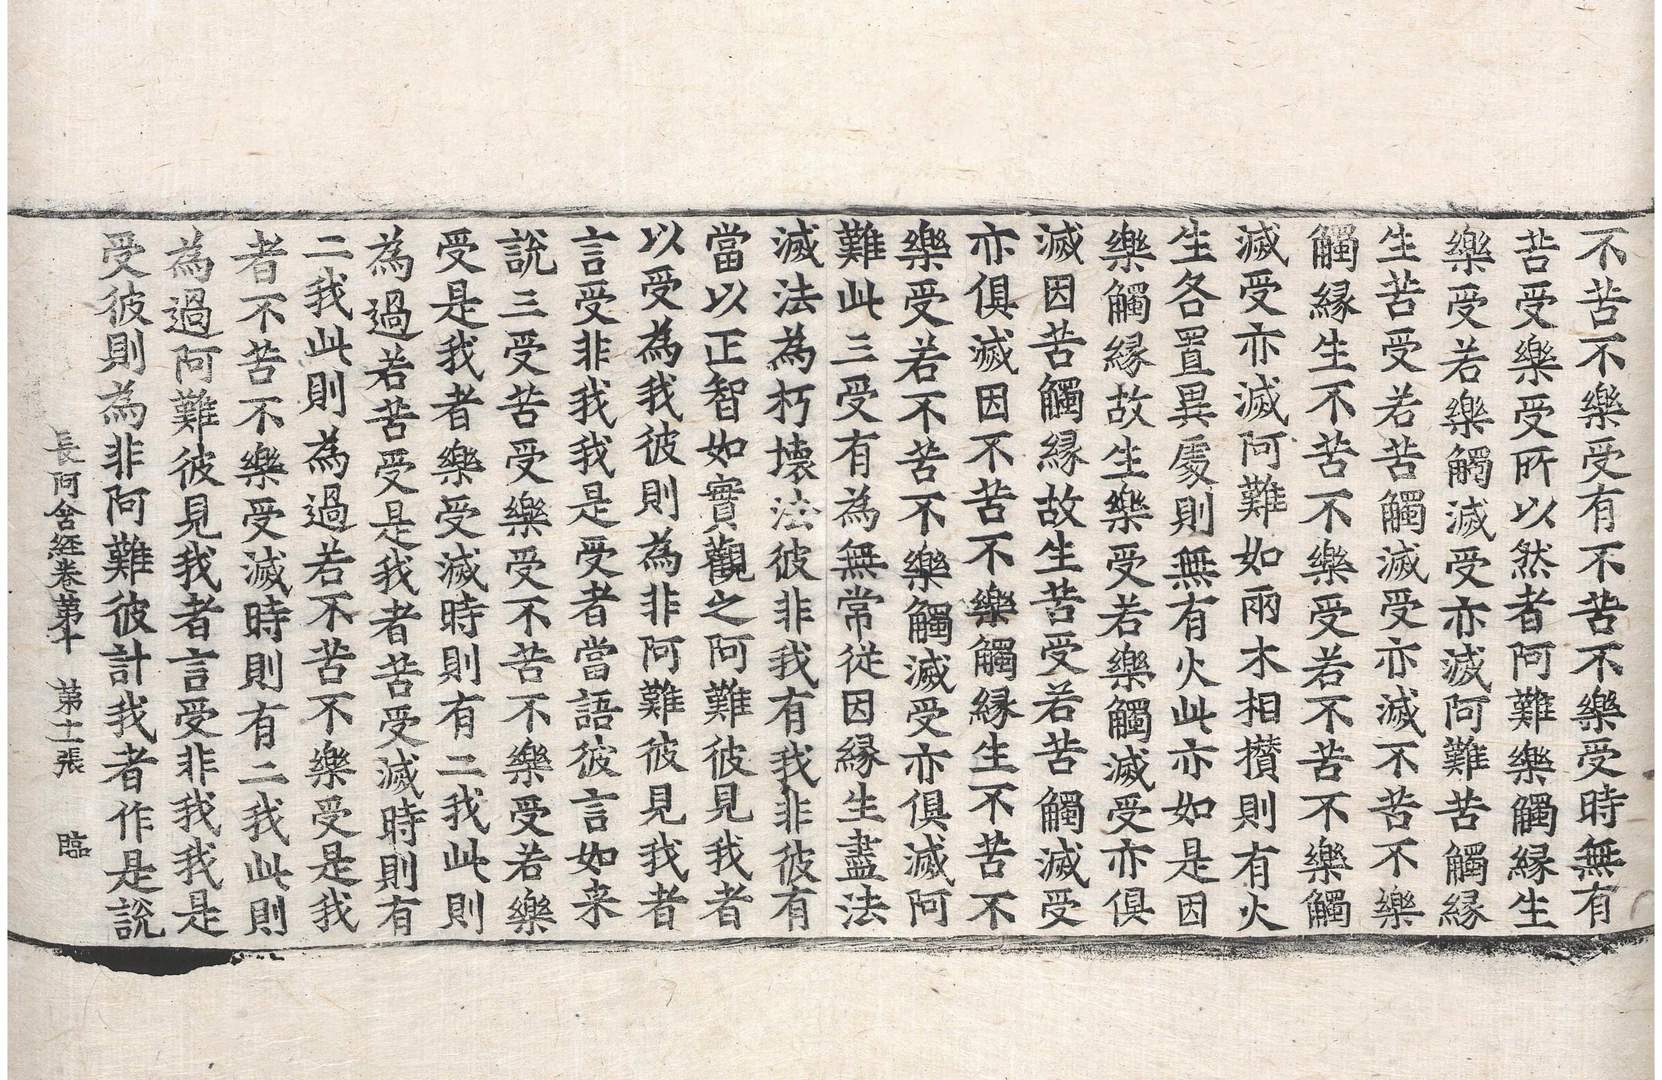 不苦不樂受有不苦不樂受時無有
苦受樂受所以然者阿難樂觸緣生
樂受若樂觸滅受亦滅阿難苦觸緣
生苦受若苦觸滅受亦滅不苦不樂
觸緣生不苦不樂受若不苦不樂觸
滅受亦滅阿難如兩木相攢則有火
生各置異處則無有火此亦如是因
樂觸緣故生樂受若樂觸滅受亦俱
滅因苦觸緣故生苦受若苦觸滅受
亦俱滅因不苦不樂觸緣生不苦不
樂受若不苦不樂觸滅受亦俱滅阿
難此三受有為無常從因緣生盡法
滅法為朽壞法彼非我有我非彼有
當以正智如實觀之阿難彼見我者
以受為我彼則為非阿難彼見我者
言受非我我是受者當語彼言如来
說三受苦受樂受不苦不樂受若樂
受是我者樂受滅時則有二我此則
為過若苦受是我者苦受滅時則有
二我此則為過若不苦不樂受是我
者不苦不樂受滅時則有二我此則
為過阿難彼見我者言受非我我是
受彼則為非阿難彼計我者作是說
長阿含經卷第十 第十一張 臨